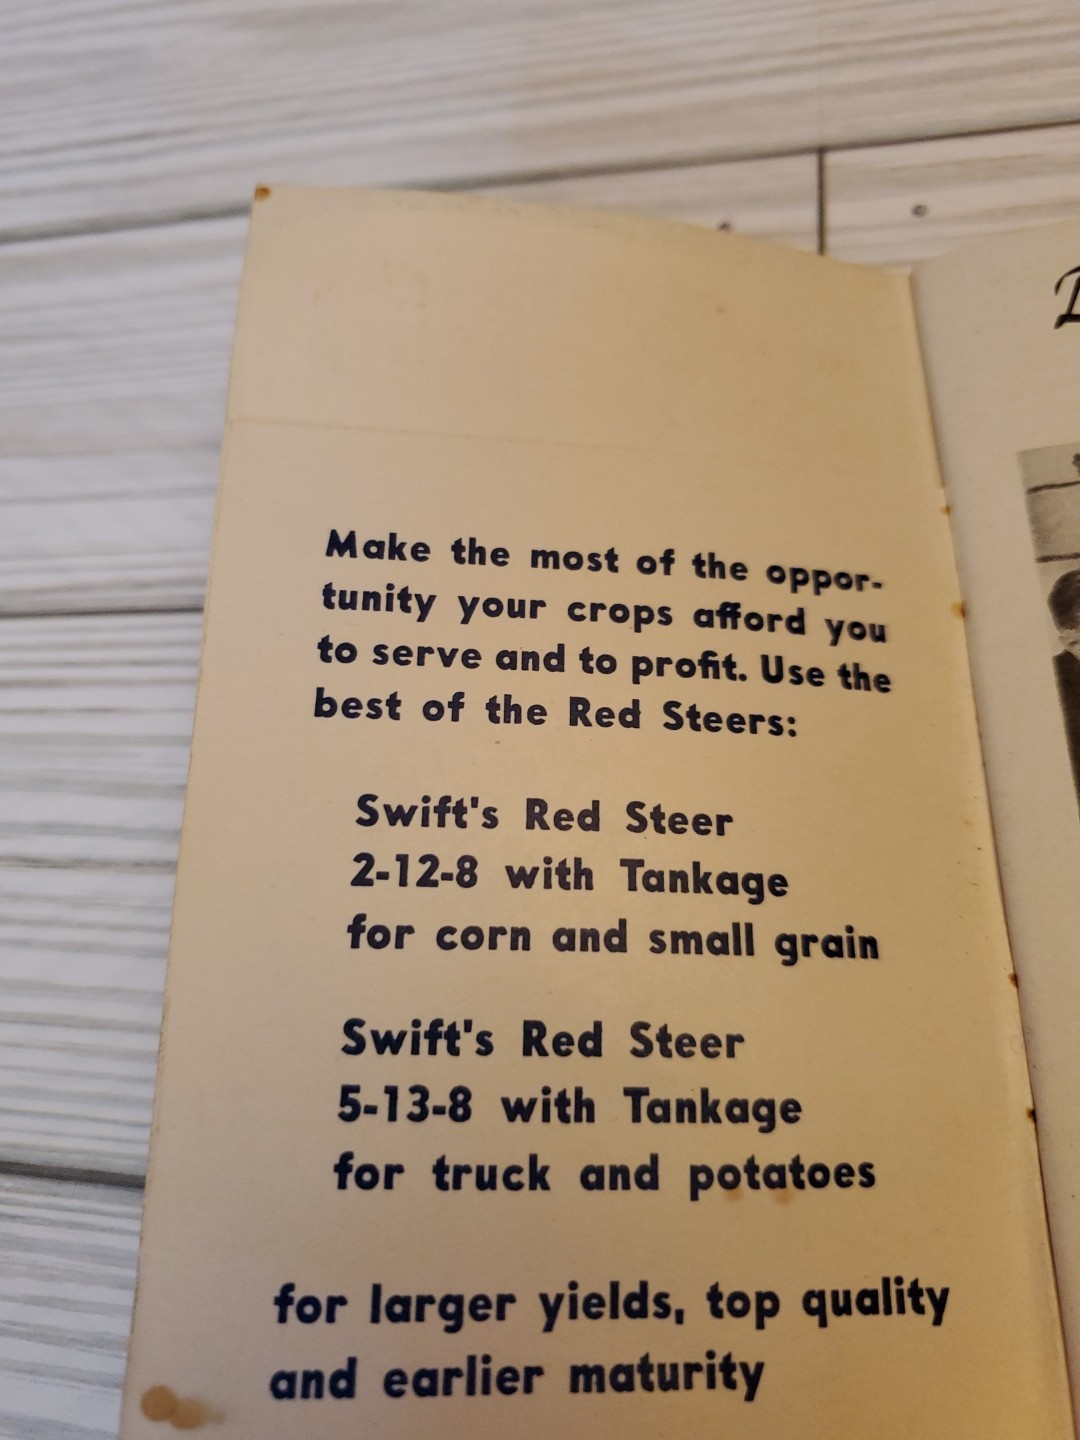 Make the most of the oppor-
tunity your crops afford you
to serve and to profit. Use the
best of the Red Steers:
Swift's Red Steer
2-12-8 with Tankage
for corn and small grain
Swift's Red Steer
5-13-8 with Tankage
for truck and potatoes
for larger yields, top quality
and earlier maturity